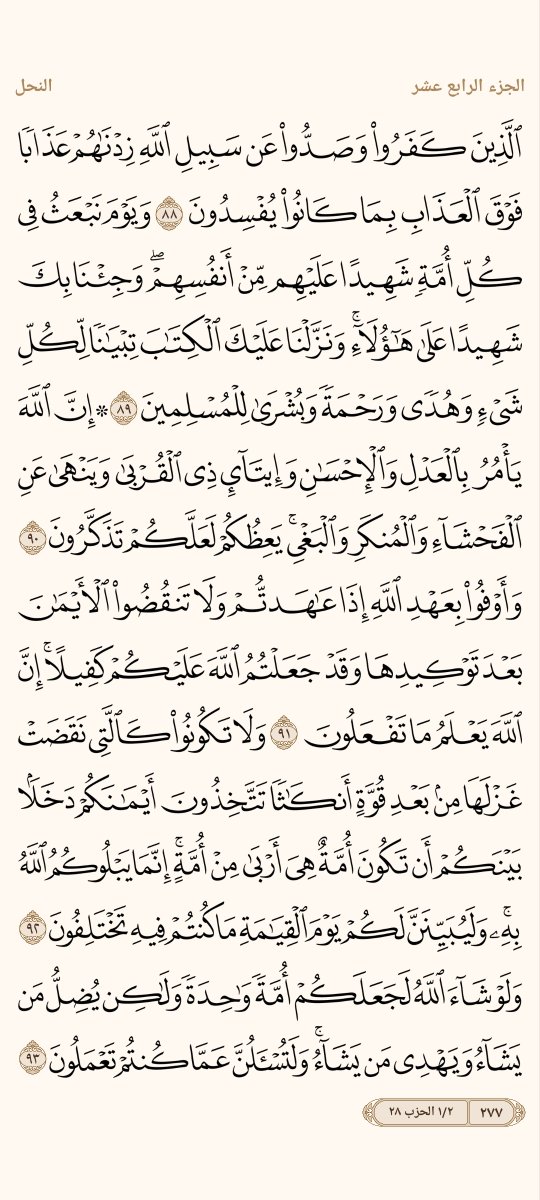 الجزء الرابع عشر
النحل
ٱلَّذِينَ كَفَرُوا۟ وَصَدُّوا۟ عَن سَبِيلِ ٱللَّهِ زِدْنَـٰهُمْ عَذَابًا
فَوْقَ ٱلْعَذَابِ بِمَا كَانُوا۟ يُفْسِدُونَ ٨٨ وَيَوْمَ نَبْعَثُ فِى
كُلِّ أُمَّةٍ شَهِيدًا عَلَيْهِم مِّنْ أَنفُسِهِمْ ۖ وَجِئْنَا بِكَ
شَهِيدًا عَلَىٰ هَـٰٓؤُلَآءِ ۚ وَنَزَّلْنَا عَلَيْكَ ٱلْكِتَـٰبَ تِبْيَـٰنًا لِّكُلِّ
شَىْءٍ وَهُدًى وَرَحْمَةً وَبُشْرَىٰ لِلْمُسْلِمِينَ ٨٩ ۞ إِنَّ ٱللَّهَ
يَأْمُرُ بِٱلْعَدْلِ وَٱلْإِحْسَـٰنِ وَإِيتَآئِ ذِى ٱلْقُرْبَىٰ وَيَنْهَىٰ عَنِ
ٱلْفَحْشَآءِ وَٱلْمُنكَرِ وَٱلْبَغْىِ ۚ يَعِظُكُمْ لَعَلَّكُمْ تَذَكَّرُونَ ٩٠
وَأَوْفُوا۟ بِعَهْدِ ٱللَّهِ إِذَا عَـٰهَدتُّمْ وَلَا تَنقُضُوا۟ ٱلْأَيْمَـٰنَ
بَعْدَ تَوْكِيدِهَا وَقَدْ جَعَلْتُمُ ٱللَّهَ عَلَيْكُمْ كَفِيلًا ۚ إِنَّ
ٱللَّهَ يَعْلَمُ مَا تَفْعَلُونَ ٩١ وَلَا تَكُونُوا۟ كَٱلَّتِى نَقَضَتْ
غَزْلَهَا مِنۢ بَعْدِ قُوَّةٍ أَنكَـٰثًا تَتَّخِذُونَ أَيْمَـٰنَكُمْ دَخَلًۢا
بَيْنَكُمْ أَن تَكُونَ أُمَّةٌ هِىَ أَرْبَىٰ مِنْ أُمَّةٍ ۚ إِنَّمَا يَبْلُوكُمُ ٱللَّهُ
بِهِۦ ۚ وَلَيُبَيِّنَنَّ لَكُمْ يَوْمَ ٱلْقِيَـٰمَةِ مَا كُنتُمْ فِيهِ تَخْتَلِفُونَ ٩٢
وَلَوْ شَآءَ ٱللَّهُ لَجَعَلَكُمْ أُمَّةً وَٰحِدَةً وَلَـٰكِن يُضِلُّ مَن
يَشَآءُ وَيَهْدِى مَن يَشَآءُ ۚ وَلَتُسْـَٔلُنَّ عَمَّا كُنتُمْ تَعْمَلُونَ ٩٣
٢٧٧
١/٢ الحزب ٢٨